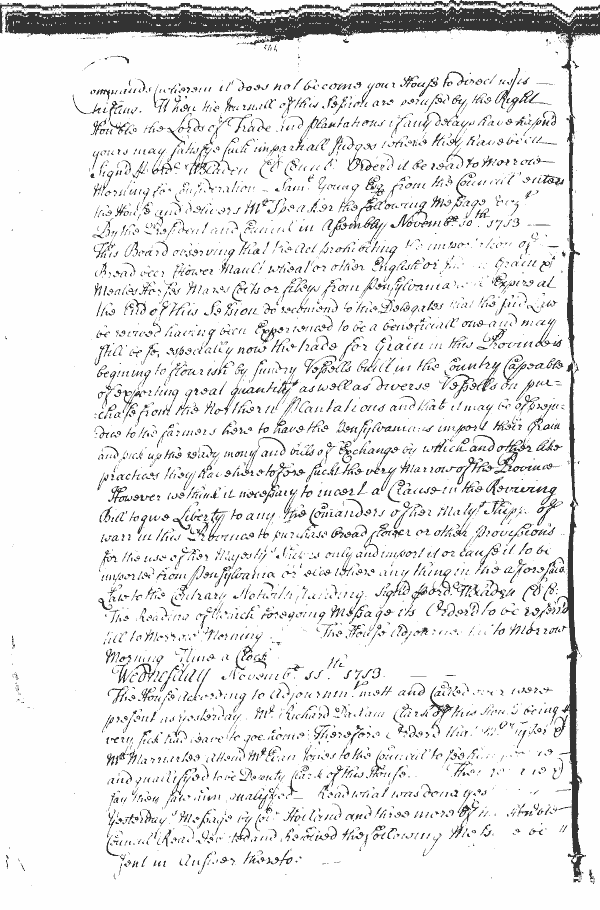 Comands (wherein it does not become your House to direct us) is
When the Journall of this Session are perused by the Right
Honble the Lords of Trade and Plantations if any delays have hapnd
yours may satisfye such impartiall Judges where they have been
Signd p ord W Bladen Cl Council Orderd it be read to Morrow
Morning for Consideration Saml Young Esqr from the Council enters
the House and delivers Mr Speaker the following Message
By the President and Council in Assembly Novembr 10th 1713
This Board observing that the Act prohibiting the importation of
Bread beer flower Mault wheat or other English or Indian Grain or
Meale Horses Mares Colts or fileys from Pensylvania will Expire at
the End of this Session do recomend to the Delegates that the said Law
be revived having been Experienced to be a beneficiall one and may
still be so, especially now the trade for Grain in this Province is
begining to flourish by sundry Vessells built in the Country Capeable
of exporting great quantitys as well as diverse Vessells on pur=
=chase from the Northern Plantations and that it may be of preju=
dice to the farmers here to have the Pensylvanians import their Grain
and pick up the ready mony and bills of Exchange by which and other like
practices they have heretofore suckt the very Marrow of the Province
However we think it necessary to insert a Clause in the Reviving
Bill to give Liberty to any the Comanders of her Matys Shipps of
warr in this Province to purchase bread flower or other Provisions
for the use of her Majestys Shipps only and import it or cause it to be
imported from Pensylvania or elsewhere any thing in the aforesaid
Law to the Contrary Notwithstanding. Signd p ord W Bladen Cl Co:
The Reading of which foregoing Message is Orderd to be referrd
till to Morrow Morning The House Adjourns till to Morrow
Morning Nine a Clock
Wednesday Novembr 11th 1713.
The House According to Adjournmt mett and called over were
present as yesterday. Mr Richard Dallam Clark of this House being
very sick had leave to go home Therefore Orderd that Mr
Mr Marriartee Attend Mr Evan Jones to the Council to see him
and qualifyed to be Deputy Clark of this House. They
say they saw him qualifyed Read what was done yesterday
yesterdays Message by Coll Holland and three more of the
Council Read Debated and Resolved the following Message be
sent in Answer thereto